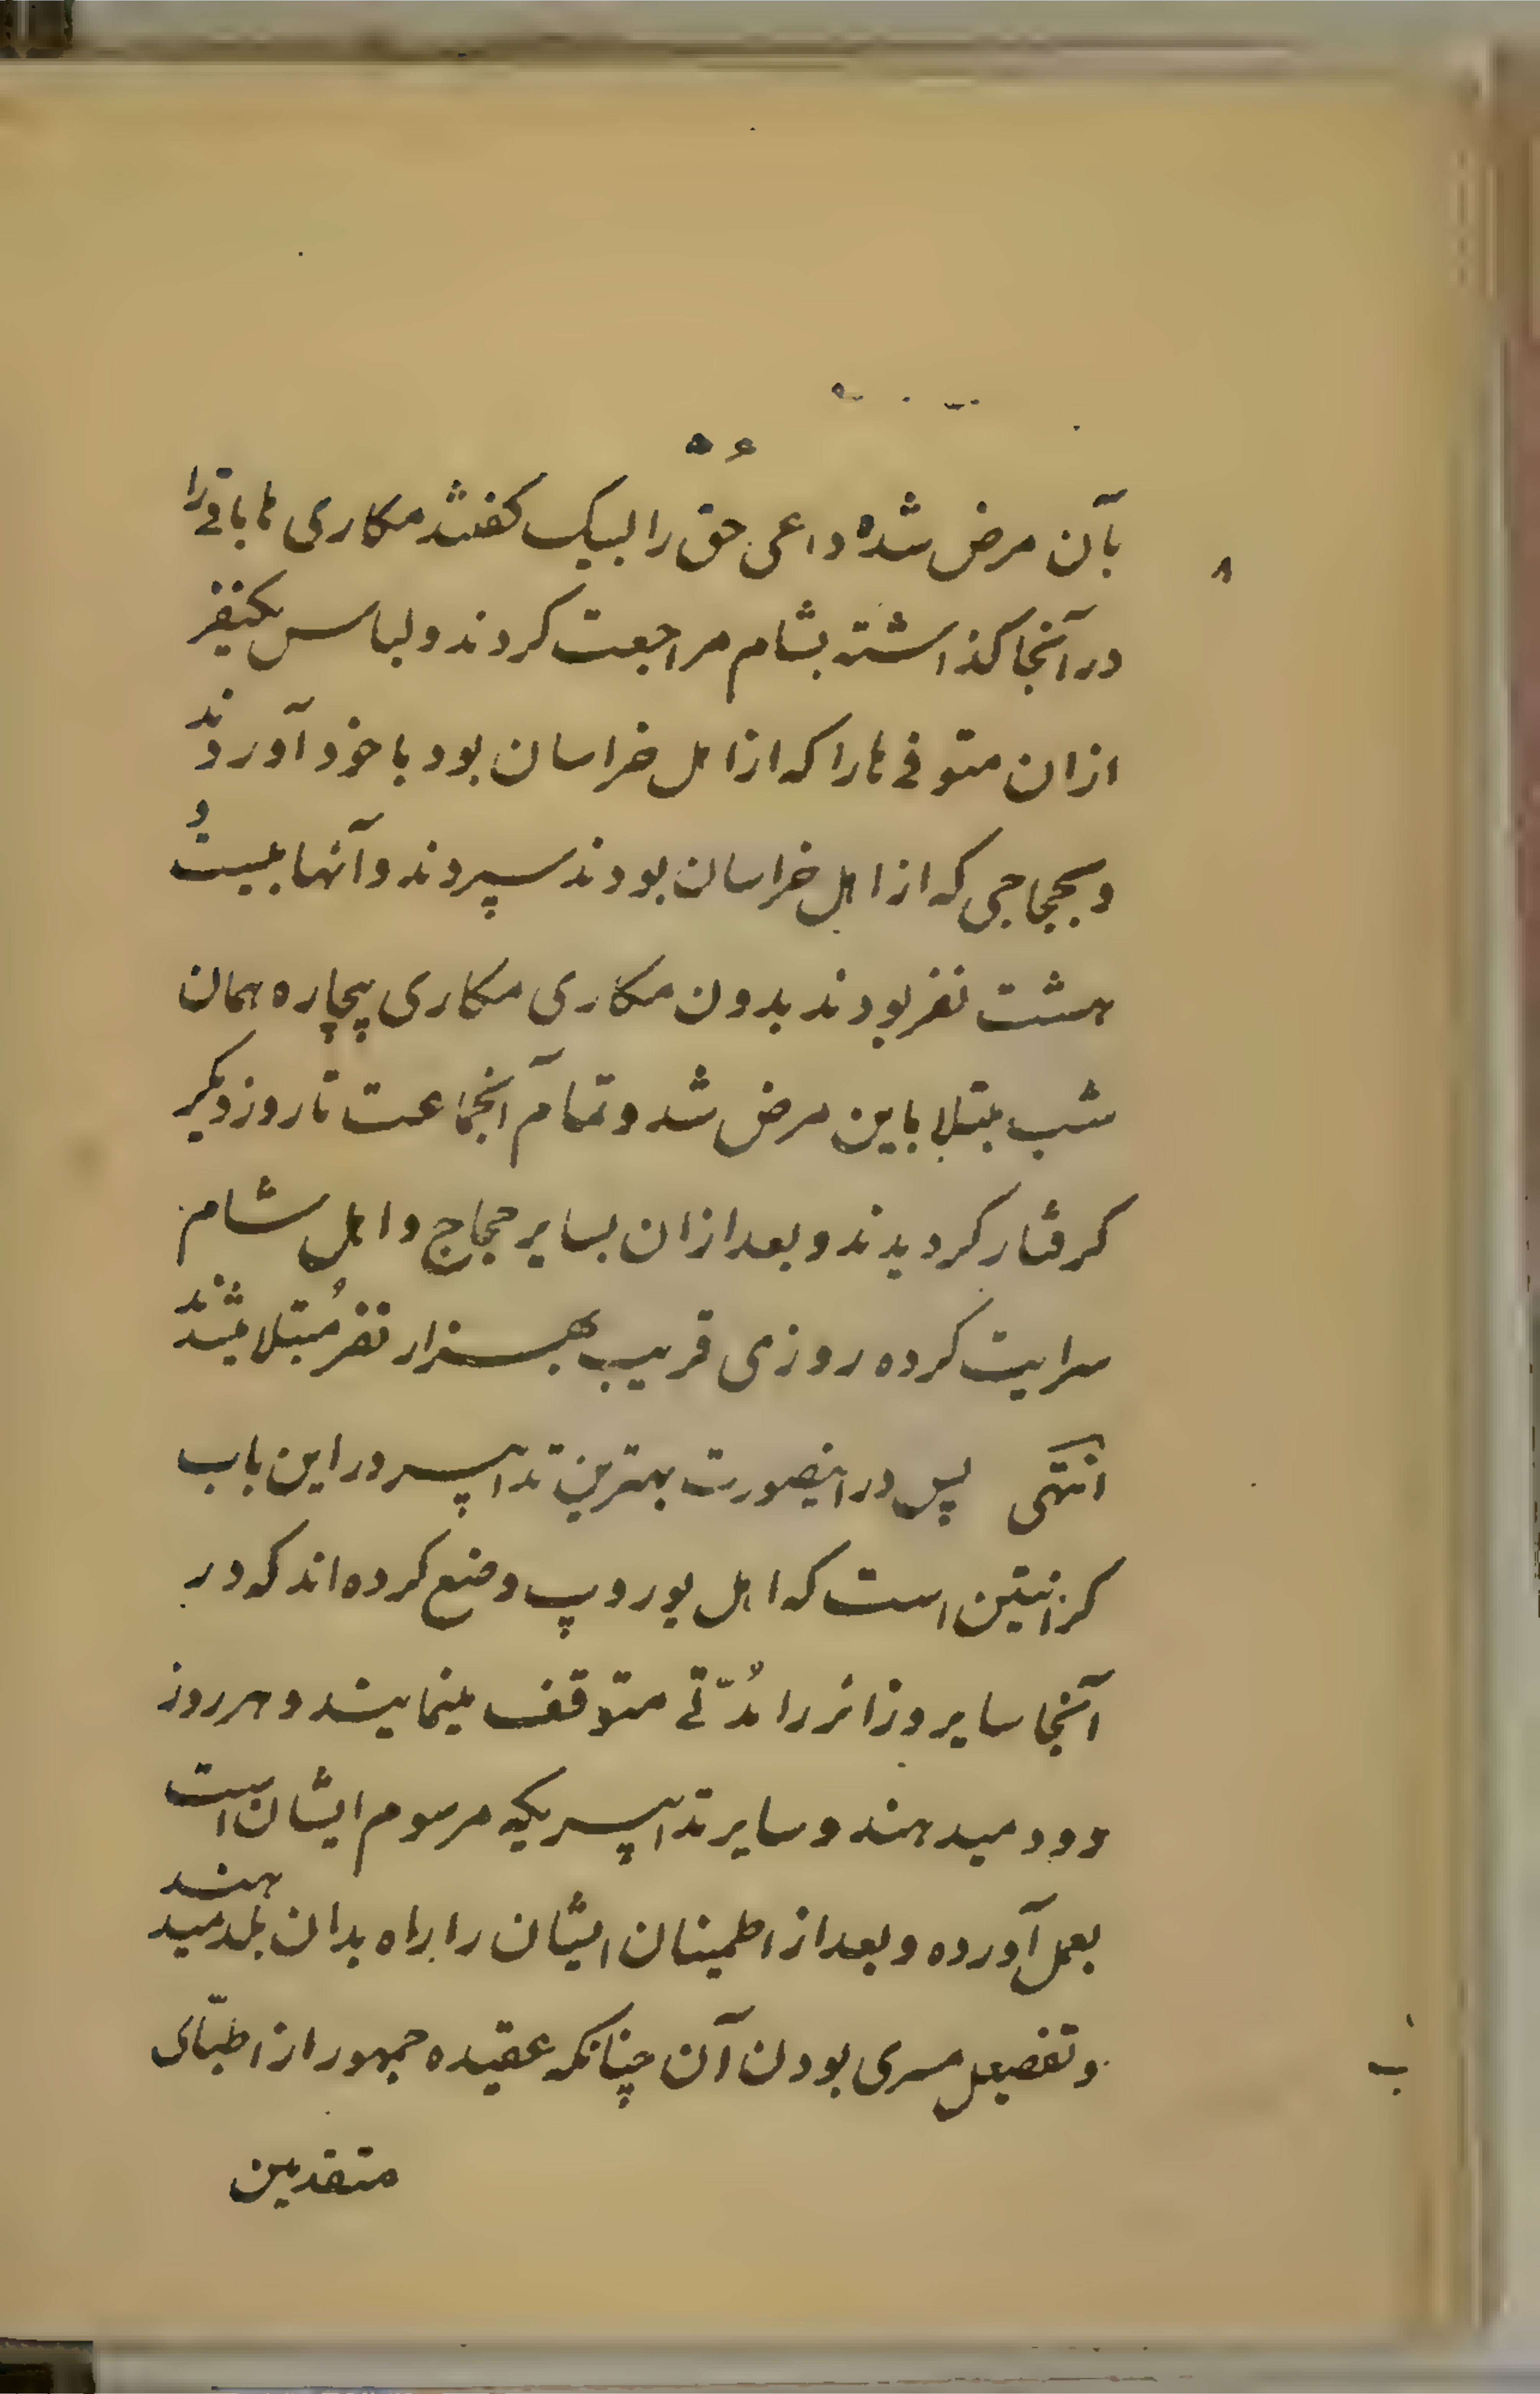 ۵۵
بآن مرض شده داعی حق را لبیک کفتند مکاری ها باقی را
در آنجا کذاشته بشام مراجعت کردند و لباس یکنفر
ازان متوفی ها را که از اهل خراسان بود با خود آوردند
و بحجاجی که از اهل خراسان بودند سپردند و آنها بیست و
هشت نفر بودند بدون مکاری مکاری بیچاره همان
شب مبتلا باین مرض شد و تمام آنجماعت تا روز دیکر
کرفتار کردیدند و بعد ازان بسایر حجاج و اهل شام
سرایت کرده روزی قریب بهزار نفر مُبتلا میشدند
انتهی پس در اینصورت بهترین تدابیر در این باب
کرانتین است که اهل یوروپ وضع کرده اند که در
آنجا سایر و زائر را مُدّتی متوقف مینمایند و هر روز
دود میدهند و سایر تدابیریکه مرسوم ایشان است
بعمل آورده و بعد از اطمینان ایشان را براه بدان بلد میدهند
و تفصیل مسری بودن آن چنانکه عقیده جمهور از اطبّای
متقدمین